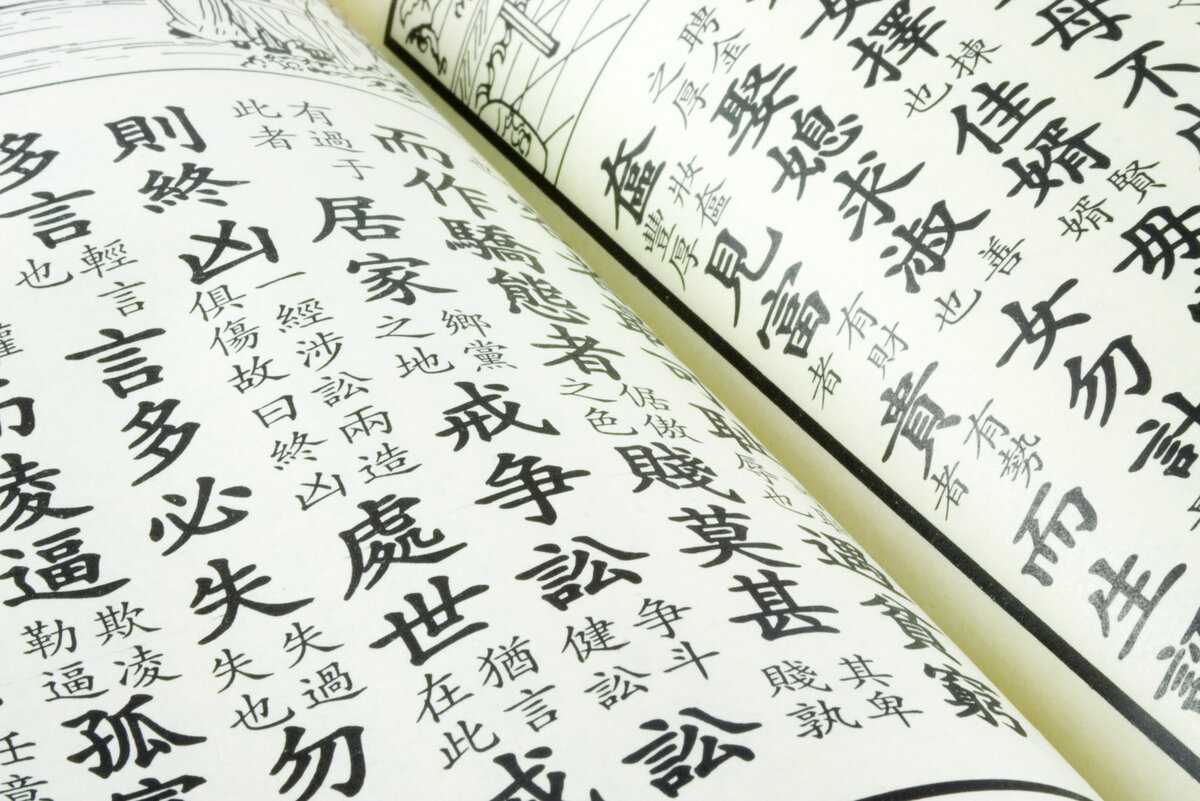 母不
女擇揀也佳婿賢婿毋
聘金之厚娶媳求淑善也女勿計
奩妝奩豐厚見富有財者貴有勢者而生
遇貧窮
而作驕態者倨傲之色賤莫甚其卑賤孰
有過于此者居家鄉黨之地戒争訟争斗健訟訟
則終凶一經涉訟兩造俱傷故曰終凶處世猶言在此戒
多言輕言也言多必失失過失也勿
凌逼欺凌勒逼孤
任意